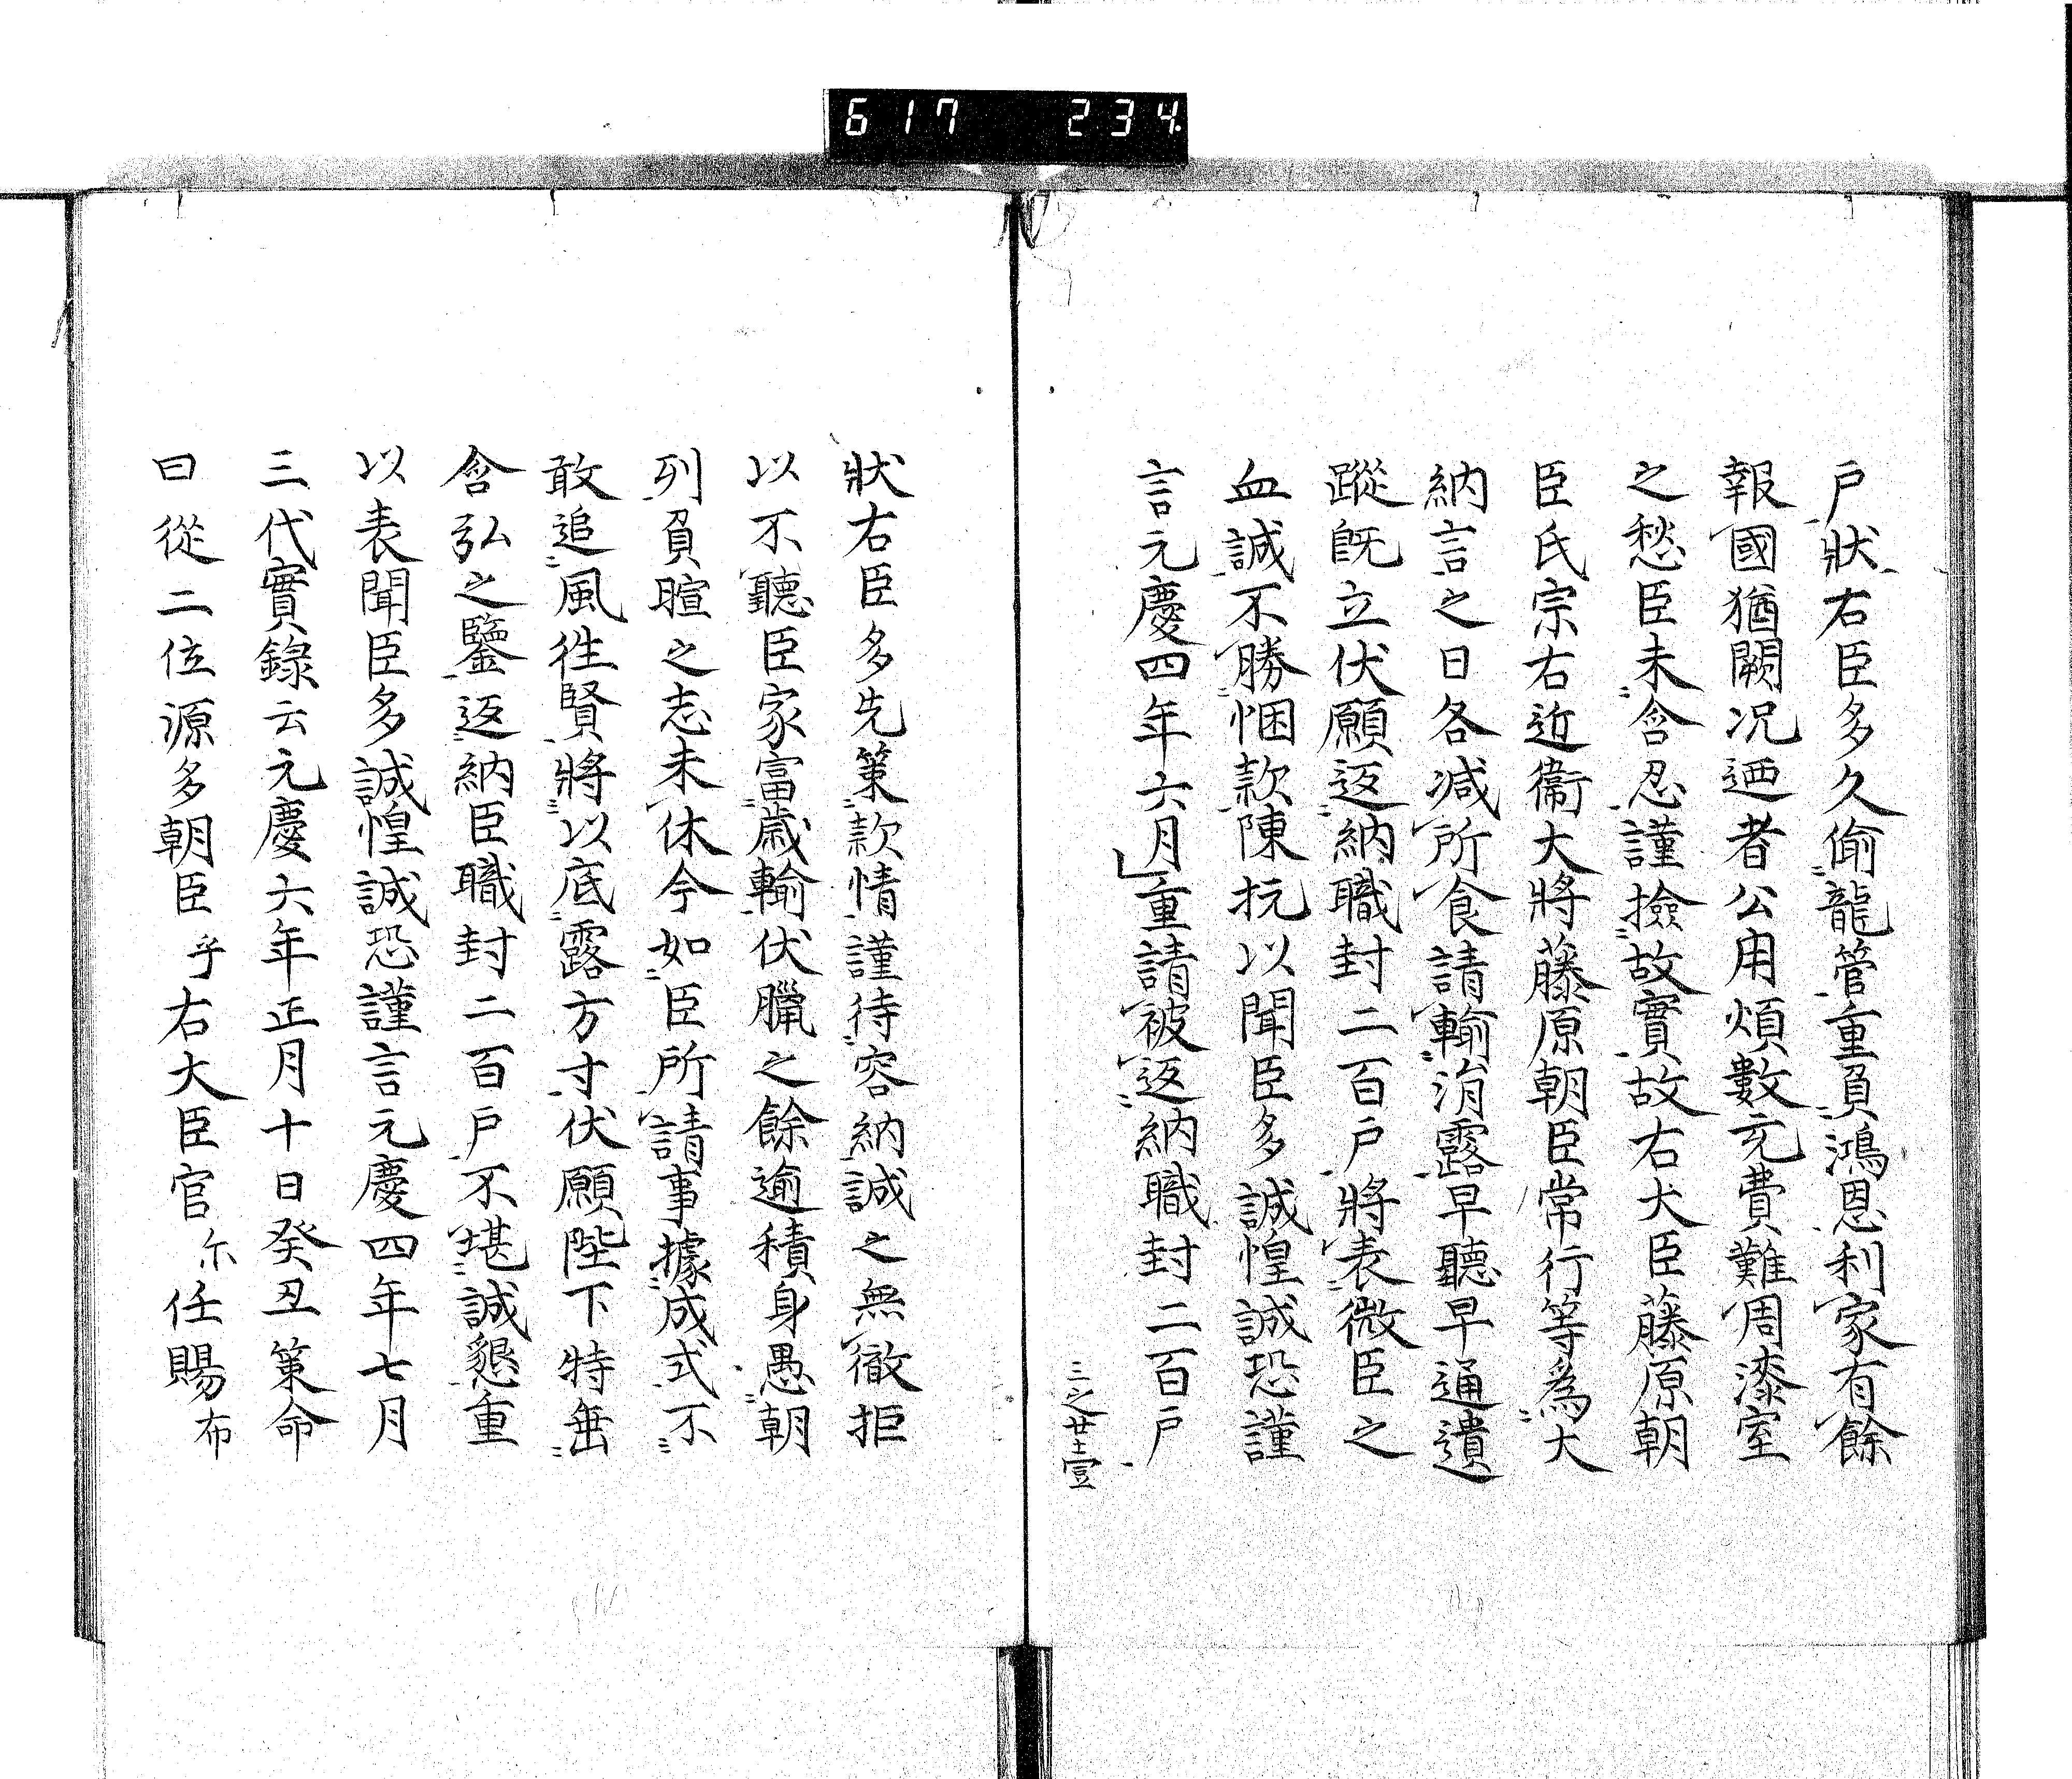 617 234
戶狀右臣多久偷龍管重負鴻恩利家有餘
報國猶闕况迺者公用煩數元費難周漆室
之愁臣未含忍謹撿故實故右大臣藤原朝
臣氏宗右近衞大將藤原朝臣常行等爲大
納言之日各减所食請輸涓露早聽早通遺
蹤旣立伏願返納職封二百戶將表微臣之
血誠不勝悃款陳抏以聞臣多誠惶誠恐謹
言元慶四年六月重請被返納職封二百戶
三之廿士壹
狀右臣多先策款情謹待容納誠之無徹拒
以不聽臣家富歲輸伏臘之餘逾積身愚朝
列負暄之志未休今如臣所請事據成式不
敢追風徃賢將以底露方寸伏願陛下特垂
含弘之鑒返納臣職封二百戶不堪誠懇重
以表聞臣多誠惶誠恐謹言元慶四年七月
三代實錄云元慶六年正月十日癸丑策命
曰從二位源多朝臣乎右大臣官尓任賜布